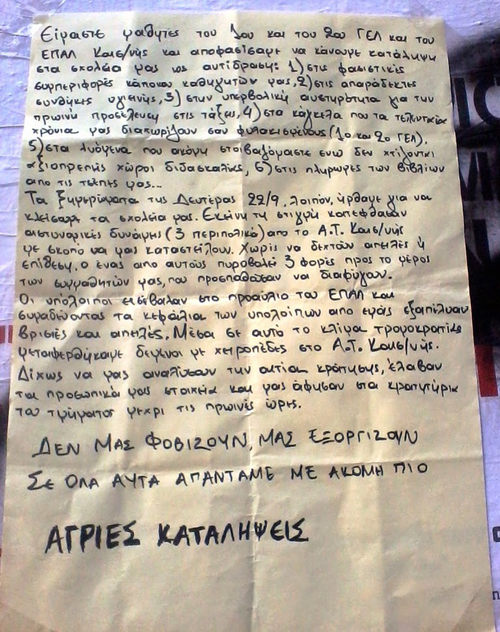 Είμαστε μαθητές του 1ου και του 2ου ΓΕΛ και του
ΕΠΑΛ Καισ/νής και αποφασίσαμε να κάνουμε κατάληψη
στα σχολεία μας ως αντίδραση: 1) στις φασιστικές
συμπεριφορές κάποιων καθηγητών μας, 2) στις απαράδεκτες
συνθήκες υγιεινής, 3) στην υπερβολική αυστηρότητα για την
πρωινή προσέλευση στις τάξεις, 4) στα κάγκελα που τα τελευταία
χρόνια μας διαχωρίζουν σαν φυλακισμένους (1ο και 2ο ΓΕΛ).
5) στα λυόμενα που ακόμη στοιβαζόμαστε ενώ δεν χτίζονται
αξιοπρεπής χώροι διδασκαλίας, 6) στις πληρωμές των βιβλίων
απο τις τσέπες μας...
Τα ξημερώματα της Δευτέρας 22/9, λοιπόν, ήρθαμε για να
κλείσουμε τα σχολεία μας. Εκείνη τη στιγμή κατέφθασαν
αστυνομικές δυνάμης (3 περιπολικά) απο το Α.Τ. Καισ/νής
με σκοπό να μας καταστείλουν. Χωρίς να δεχτούν απειλές ή
επίθεση, ο ένας απο αυτούς πυροβολεί 3 φορές προς το μέρος
των συμμαθητών μας, που προσπάθουσαν να διαφύγουν.
Οι υπόλοιποι εισέβαλαν στο προαύλιο του ΕΠΑΛ και
σημαδεύοντας τα κεφάλια των υπολοίπων απο εμάς εξαπέλυαν
βρισιές και απειλές. Μέσα σε αυτό το κλίμα τρομοκρατίας
μεταφερθήκαμε δεμένοι με χειροπέδες στο Α.Τ. Καισ/νής.
Δίχως να μας αναλύσουν την αιτία κράτησης, έλαβαν
τα προσωπικά μας στοιχεία και μας άφησαν στα κρατητήρια
του τμήματος μέχρι τις πρωινές ώρες.
ΔΕΝ ΜΑΣ ΦΟΒΙΖΟΥΝ, ΜΑΣ ΕΞΟΡΓΙΖΟΥΝ
ΣΕ ΟΛΑ ΑΥΤΑ ΑΠΑΝΤΑΜΕ ΜΕ ΑΚΟΜΗ ΠΙΟ
ΑΓΡΙΕΣ ΚΑΤΑΛΗΨΕΙΣ